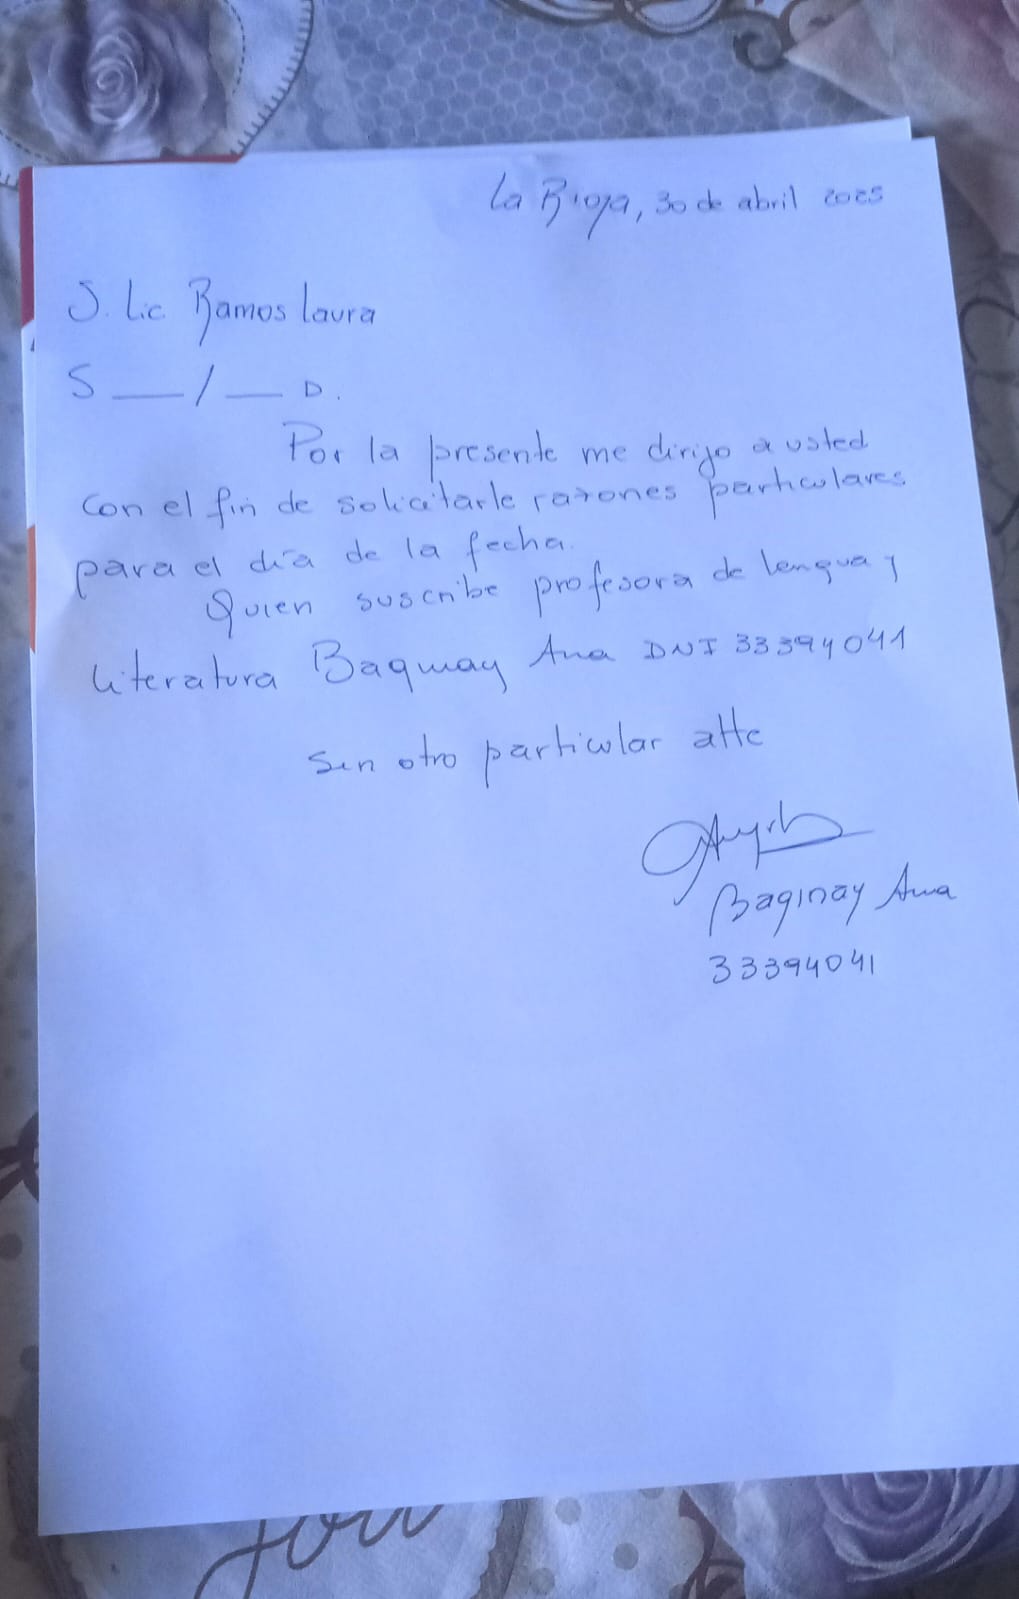 La Rioja, 30 de abril 2025
S. Lic. Ramos Laura
S __ / __ D.
Por la presente me dirijo a usted
con el fin de solicitarle razones particulares
para el día de la fecha.
Quien suscribe profesora de lengua y
Literatura Baqinay Ana DNI 33394041
Sin otro particular atte
Baginay Ana
33394041